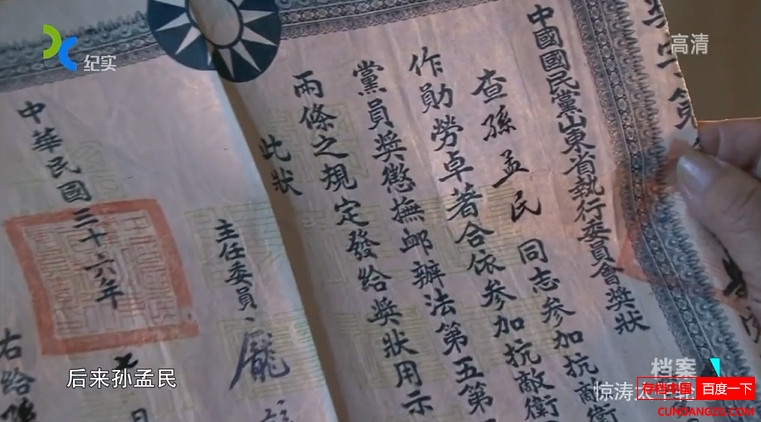 纪实
高清
字第
中國國民黨山東省執行委員會獎狀
查孫孟民同志參加抗敵衛
作勛勞卓著合依參加抗敵衛
黨員獎懲撫卹辦法第五第
兩條之規定發給獎狀用示
此狀
主任委員 龐
中華民國三十六年 月
右給
后来孙孟民
档案
惊涛太平
存档中国 百度一下
CUNDANGZG.COM